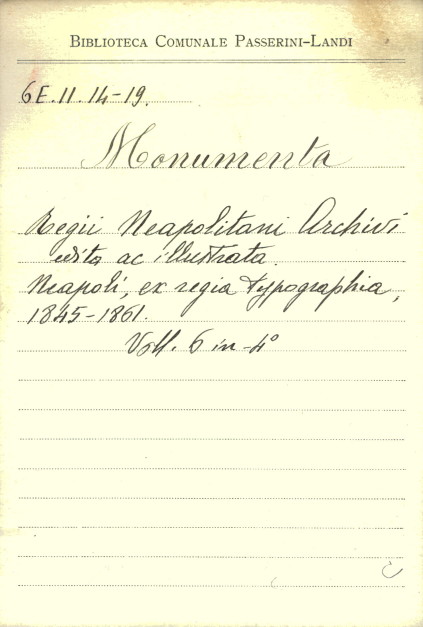 BIBLIOTECA COMUNALE PASSERINI-LANDI
6E.11.14-19.
Monumenta
Regii Neapolitani Archivi
edita ac illustrata.
Neapoli, ex regia typographia,
1845-1861.
Voll. 6 in-4°